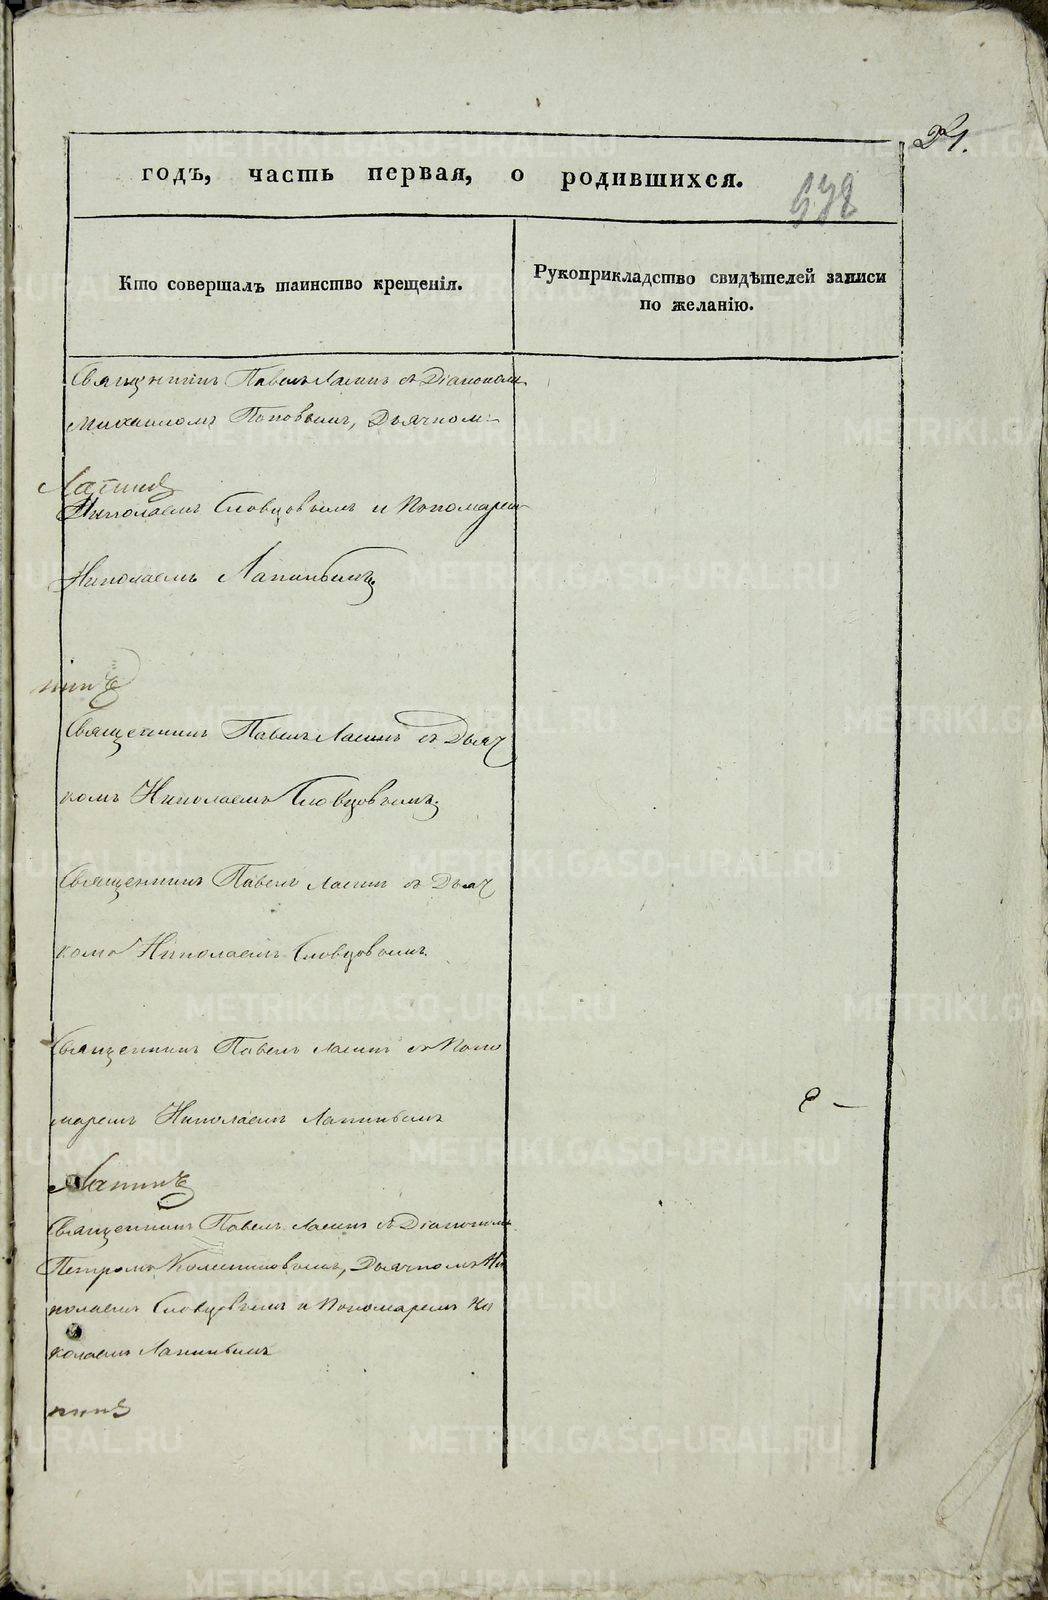 21.
годъ, часть первая, о родившихся.
538
Кто совершалъ таинство крещенія.
Рукоприкладство свидѣтелей записи
по желанію.
Священникъ Павелъ съ Діакономъ
Михаиломъ Поповымъ, Дьячкомъ
Николаемъ Словцовымъ и Пономаремъ
Николаемъ Лапинымъ
Священникъ Павелъ съ Дьяч
комъ Николаемъ Словцовымъ
Священникъ Павелъ съ Дьяч
комъ Николаемъ Словцовымъ
Священникъ Павелъ съ Поно
маремъ Николаемъ Лапинымъ
Священникъ Павелъ съ Діакономъ
Петромъ Дьячкомъ Ни
колаемъ Словцовымъ и Пономаремъ Ни
колаемъ Лапинымъ
METRIKI.GASO-URAL.RU